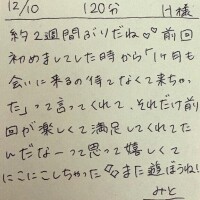 12/10 120分 H様
約2週間ぶりだね♡♡前回
初めましてした時から「1ヶ月も
会いに来るの待てなくて来ちゃっ
た」って言ってくれて、それだけ前
回が楽しくて満足してくれてた
んだなーって思って嬉しくて
にこにこしちゃった また遊ぼうね!
みと